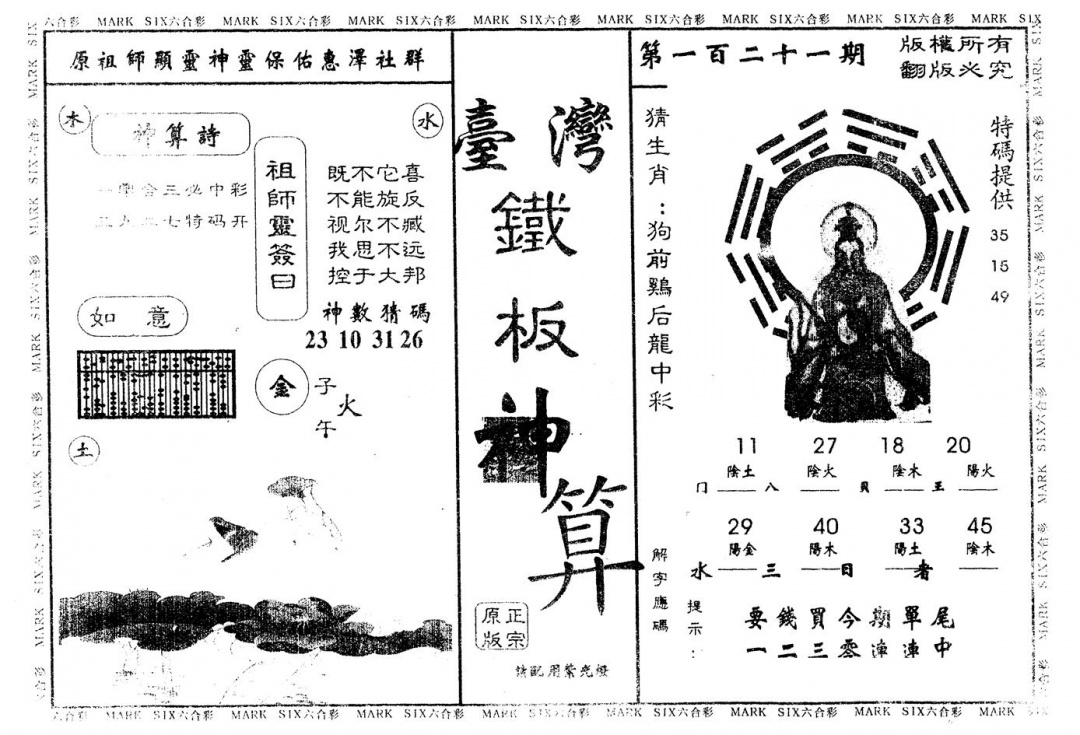 MARK SIX六合彩 MARK SIX六合彩 MARK SIX六合彩 MARK SIX六合彩 MARK SIX六合彩 MARK SIX六合彩 MARK SIX六合彩 MARK SIX
原祖師顯靈神靈保佑惠澤社群
木
神算詩
水
彩中必三合
开码特七二九
祖師靈簽曰
既不它喜
不能旋反
视尔不臧
我思不远
控于大邦
神數猜碼
23 10 31 26
如意
金
子
火
午
土
臺灣
鐵
板
神
算
正宗
原版
請配用紫光燈
第一百二十一期
版權所有
翻版必究
猜生肖：狗前鷄后龍中彩
特碼提供
35
15
49
11 27 18 20
陰土 陰火 陰木 陽火
门 八 貝 王
29 40 33 45
陽金 陽木 陽土 陰木
水 三 日 者
解字應碼
提示：
要錢買今期單尾
一二三零連連中
MARK SIX六合彩 MARK SIX六合彩 MARK SIX六合彩 MARK SIX六合彩 MARK SIX六合彩 MARK SIX六合彩 MARK